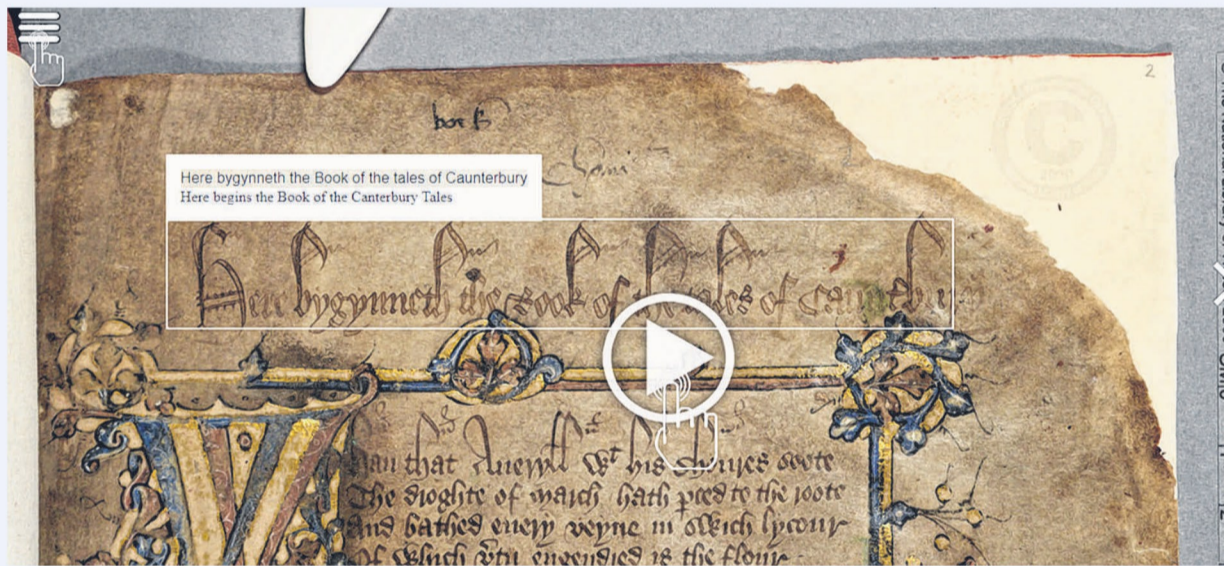 2
Here bygynneth the Book of the tales of Caunterbury
Here begins the Book of the Canterbury Tales
Here bygynneth the Book of the tales of Caunterbury
Whan that Aueryll wt his shoures soote
The droghte of march hath pced to the roote
And bathed euery veyne in swich lycour
Of which vtu engendred is the flour